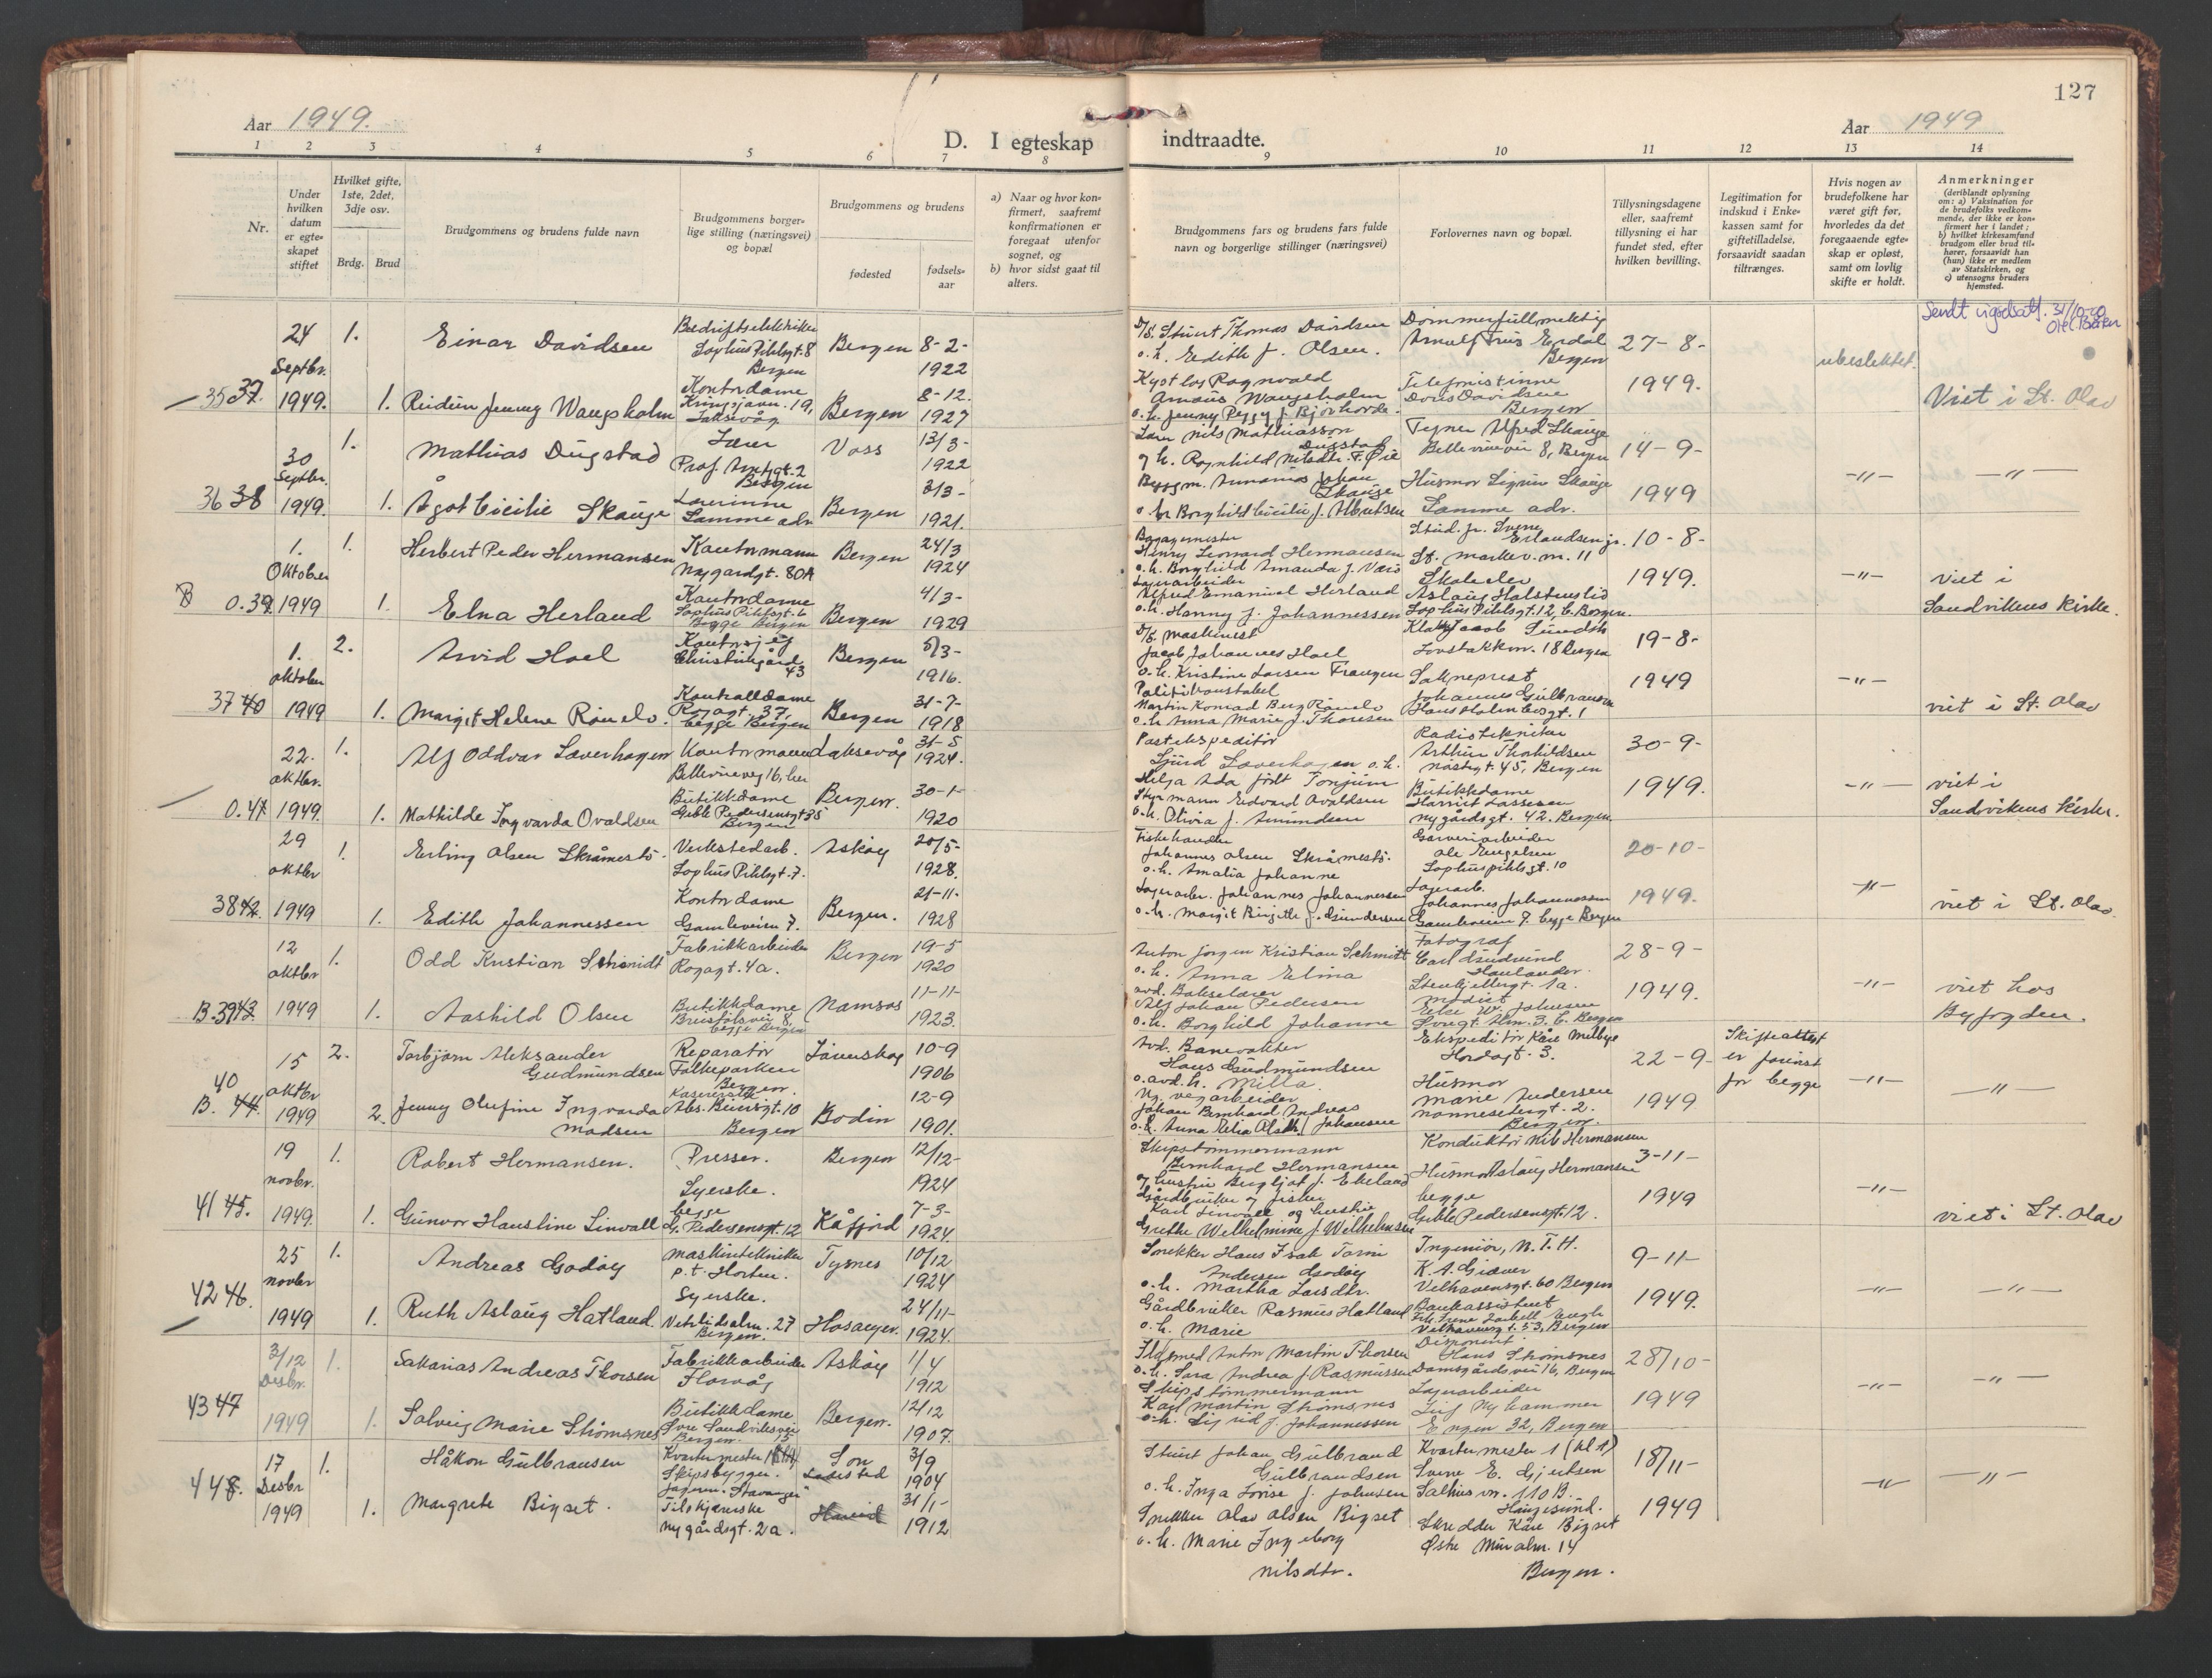 127
Aar 1949.
D. I egteskap
indtraadte.
Aar 1949
1 2 3 4 5 6 7 8
9 10 11 12 13 14
Nr.
Under hvilken datum er egteskapet stiftet
Hvilket gifte, 1ste, 2det, 3dje osv.
Brdg. Brud
Brudgommens og brudens fulde navn
Brudgommens borgerlige stilling (næringsvei) og bopæl
Brudgommens og brudens
fødested
fødselsaar
a) Naar og hvor konfirmert, saafremt konfirmationen er foregaat utenfor sognet, og
b) hvor sidst gaat til alters.
Brudgommens fars og brudens fars fulde navn og borgerlige stillinger (næringsvei)
Forlovernes navn og bopæl.
Tillysningsdagene eller, saafremt tillysning ei har fundet sted, efter hvilken bevilling.
Legitimation for indskud i Enkekassen samt for giftetilladelse, forsaavidt saadan tiltrænges.
Hvis nogen av brudefolkene har været gift før, hvorledes da det foregaaende egteskap er opløst, samt om lovlig skifte er holdt.
Anmerkninger
(deriblandt oplysning om: a) Vaksination for de brudefolks vedkommende, der ikke er konfirmert her i landet; b) hvilket kirkesamfund brudgom eller brud tilhører, forsaavidt han (hun) ikke er medlem av Statskirken, og c) utensogns bruders hjemsted.
35 37. 24 Septbr. 1949. 1.
Einar Davidsen
Bedriftselektriker
Sophus Pihlsgt. 8
Bergen
Bergen 8-2-1922
1. Reidun Jenny Waagsholm
Kontordame
Laksevåg
Bergen 8-12. 1927
D/S. Stuert Thomas Davidsen
o.h. Edith f. Olsen.
Kystlos Ragnvald
o.h. Jenny Peggy f.
Dommerfullmektig
Bergen
Telefonistinne
Doris Davidsen
Bergen
27-8-1949.
ubeslektet.
Viet i St. Olav
36 38 30 Septbr. 1949. 1.
Mathias Dugstad
Lærer
Bergen
Voss 13/3-1922
1. Ågot Cicilie Skauge
Lærerinne
Samme adr
Bergen 3/3-1921.
Lærer Nils Mathiasson
Dugstad
og h. Ragnhild Nilsdtr. f. Øie
Skauge
o.h. Borghild Cicilie f. Albertsen
Tegner Alfred Skauge
Bellevuevei 8, Bergen
Husmor Sigrun Skauge
Samme adr.
14-9-1949
-"- -"-
0.39 1. Oktober 1949 1.
Herbert Peder Hermansen
Kontormann
Nygardgt. 80A
Bergen 24/3 1924
1. Elna Herland
Kontordame
Sophus Pihlsgt. 6
Begge Bergen
Bergen 4/3-1929
Bagagemester
Henry Leonard Hermansen
o.h. Borghild Amanda f. Værø
Lagerarbeider
Alfred Emanuel Herland
o.h. Hanny f. Johannessen
Stud. jr. Sverre
Erlandsen jr.
St. Markev. m. 11
Skoleelev
Aslaug Halstenslid
Sophus Pihlsgt. 12, b. Bergen.
10-8-1949.
-"-
viet i
Sandvikens Kirke.
37 40 1. oktober 1949 2.
Arvid Hoel
Christiesgård 43
Bergen 5/3-1916.
1. Margit Helene Rönelv.
Kontrolldame
begge Bergen
Bergen 31-7-1918
D/S. Maskinist
Jacob Johannes Hoel
o.h. Kristine Larsen Frangen
Politikonstabel
Martin Konrad Berg Rönelv
o.h. Anna Marie f. Thoresen
Løvstakkvn. 18 Bergen
Sokneprest
Johannes Gulbransen
Hans Holmboesgt. 1
19-8-1949
-"-
viet i St. Olav
0.41 22. oktbr. 1949 1.
Alf Oddvar Laverhagen
Kontormann
Bellevueveg 16, her
Laksevåg 31-5 1924.
1. Mathilde Ingvarda Ovaldsen
Butikkdame
Geble Pedersensgt 35
Bergen
Bergen. 30-1-1920
Postekspeditör
Sjurd Laverhagen o.h.
Helga Ada født Fonjum
Styrmann Edvard Ovaldsen
o.h. Olivia f. Amundsen
Radiotekniker
Arthur Thorkildsen
Nöstegt. 45, Bergen
Butikkdame
Harriet Lassesen
Nygårdsgt. 42. Bergen.
30-9-1949.
-"-
viet i
Sandvikens kirke.
38 42. 29 oktbr 1949 1.
Erling Olsen Skråmestø.
Verkstedarb.
Sophus Pihlsgt. 7.
Askøy 20/5-1928.
1. Edith Johannessen
Kontordame
Gamleveien 7.
Bergen. 21-11-1928
Fiskehandler
Johannes Olsen Skråmestø.
o.h. Amalia Johanne
Lagerarb. Johannes Johannessen
o.h. Margit Birgitte f. Gundersen
Garveriarbeider
Ole Engelsen
Sophus pihlsgt. 10
Lagerarb.
Johannes Johannessen
Gamleveien 7. begge Bergen
20-10-1949.
-"-
viet i St. Olav.
B. 39 43. 12 oktbr 1949 1.
Odd Kristian Schmidt
Fabrikkarbeider
Bergen 19-5 1920
1. Aashild Olsen
Butikkdame
begge Bergen
Namsos 11-11-1923.
Anton Jørgen Kristian Schmidt
o.h. Anna Elina
Alf Johan Pedersen
o.h. Borghild Johanne
Fotograf
Carl Gudmund
Haulander.
Stenkjellergt. 1a.
Modist
28-9-1949.
-"-
viet hos
Byfogden.
40 B. 44. 15 oktbr 1949 2.
Torbjørn Aleksander
Gudmundsen
Reparatør
Falkeparken
Bergen.
Lörenskog 10-9 1906
2. Jenny Olufine Ingvarda
Madsen
Kasererske
Bergen
Bodin 12-9 1901.
Avd. Banevokter
Hans Gudmundsen
o.avd.h. Milla.
Vg. vegarbeider
Johan Bernhard Andreas
Johansen
Ekspeditør Kåre Melbye
Hordagt. 3.
Husmor
Marie Andersen
Nonnesetergt. 2.
Bergen.
22-9-1949
Skifteattest
er forevist
for begge
-"- -"-
41 45. 19 novbr. 1949. 1.
Robert Hermansen.
Presser.
Bergen 12/12-1924
1. Gunvor Hansline Linvall
Syerske.
begge
G. Pedersensgt. 12
Kåfjord 7-3-1924.
Skipstømmermann
Bernhard Hermansen
og hustru Bergljot f. Ekeland
Gårdbruker og fisker
Karl Linvall og hustru
Grethe Wilhelmine f. Wilhelmsen
Konduktör Nils Hermansen
Husmor Aslaug Hermansen
begge
Geble Pedersensgt. 12.
3-11-1949
-"-
viet i St. Olav
42 46. 25 novbr 1949 1.
Andreas Godøy
Maskintekniker
p.t. Horten.
Tysnes 10/12 1924
1. Ruth Aslaug Hatland.
Syerske.
Vetrlidsalm. 27
Bergen.
Hosanger. 24/11-1924.
Snekker Hans Isak Tormi
Andersen Godøy
o.h. Martha Larsdtr.
Gårdbruker Rasmus Hatland
o.h. Marie
Ingeniör, N.T.H.
K.A. Giæver
Velhavensgt. 60 Bergen
Bankassistent
Velhavensgt. 53, Bergen
9-11-1949.
-"- -"-
43 47 3/12 Desbr. 1949 1.
Sakarias Andreas Thorsen
Fabrikkarbeider
Florvåg
Askøy 1/4 1912
1. Solveig Marie Strömsnes
Butikkdame
Bergen.
Bergen. 12/12 1907.
Ildsmed Anton Martin Thorsen
o.h. Sara Andrea f. Rasmussen
Skipstömmermann
Karl Martin Strömsnes
o.h. Sigrid f. Johannessen
Disponent
Hans Strömsnes
Damsgårdsvei 16, Bergen
Lagerarbeider
Leif Nyhammer
Engen 32, Bergen
28/10-1949
-"- -"-
44 8. 17 Desbr 1949 1.
Håkon Gulbransen
Kvartermester 1
Son
Ladested
3/9 1904
1. Margrete Bigset.
Tilskjærerske
Nygårdsgt. 2a.
31/1-1912
Stuert Johan Gulbrand
Gulbrandsen
o.h. Inga Lovise f. Johnsen
Snekker Olav Olsen Bigset
o.h. Marie Ingeborg
Nilsdtr.
Kvartermester 1 (kl 1)
Sverre E. Gjertsen
Salhusvn. 110 B.
Haugesund.
Skredder Kåre Bigset
Østre Muralm. 14
Bergen.
18/11-1949
-"- -"-